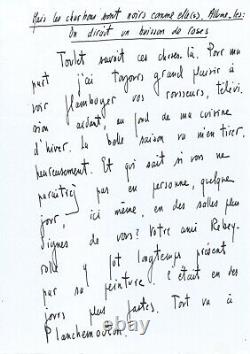 Mais les charbons sont noirs comme elle(s). Allume-les:
On dirait un buisson de roses
Toulet savait ces choses-là. Pour ma
part j'ai toujours grand plaisir à
voir flamboyer vos rousseurs, télévi-
sion ardent, au fond de ma cuisine
d'hiver. La belle saison va m'en tirer,
heureusement. Et qui sait si vous ne
paraîtrez pas en personne, quelque
jour, ici même, en des salles plus
dignes de vous? Votre ami Rebey-
rolle y fut longtemps présent
par sa peinture. C'était en des
jours plus fastes. Tout va à
Planchemouton.
ebay